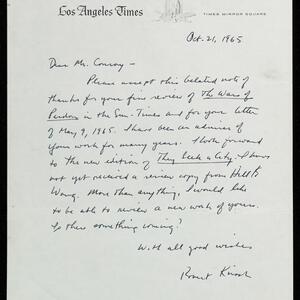 Los Angeles Times
TIMES MIRROR SQUARE
Oct. 21, 1965
Dear Mr. Conroy —
Please accept this belated note of
thanks for your fine review of The Wars of
Pardon in the Sun-Times and for your letter
of May 9, 1965. I have been an admirer of
your work for many years. I look forward
to the new edition of They Seek a City. I have
not yet received a review copy from Hill &
Wang. More than anything, I would like
to be able to review a new work of yours.
Is there something coming?
With all good wishes
Robert Kirsch